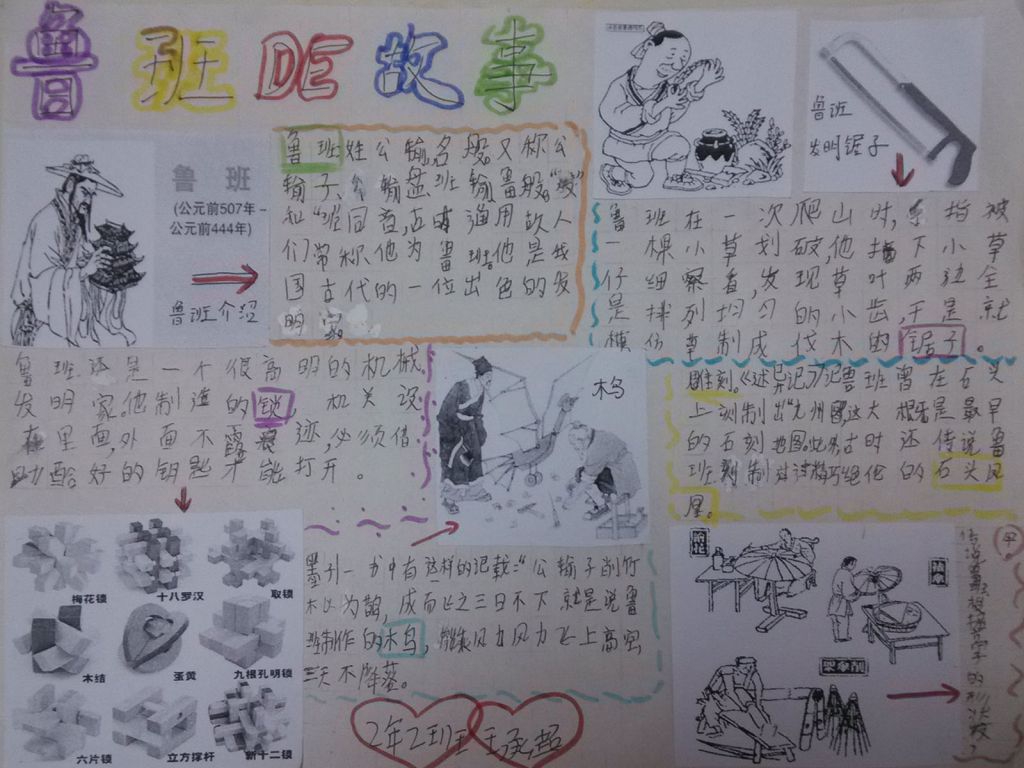 鲁班DE故事
鲁班
(公元前507年-
公元前444年)
鲁班介绍
鲁班姓公输名般又称公
输子、公输盘班输鲁般"般"
和"班同音,古时通用故人
们常称他为鲁班他是我
国古代的一位出色的发
明家
鲁班
发明锯子
鲁班在一次爬山时,手指被
一棵小草划破,他摘下小草
仔细察看,发现草叶两边全
是排列均匀的小齿,于是就
模仿草制成伐木的锯子。
鲁班还是一个很高明的机械
发明家。他制造的锁,机关设
在里面,外面不露痕迹,必须借
助配好的钥匙才能打开。
木鸟
雕刻.《述异记》记鲁班曾在石头
上刻制出"九州图,这大概是最早
的石刻地图。此外,古时还传说鲁
班刻制过精巧绝伦的石头凤
凰。
梅花锁
十八罗汉
取锁
木结
蛋黄
九根孔明锁
六片锁
立方择杆
新十二锁
一书中有这样的记载:"公输子削竹
木以为鹊,成而飞之三日不下就是说鲁
班制作的木鸟,借风力飞上高空
三天不降落。
2年2班
的